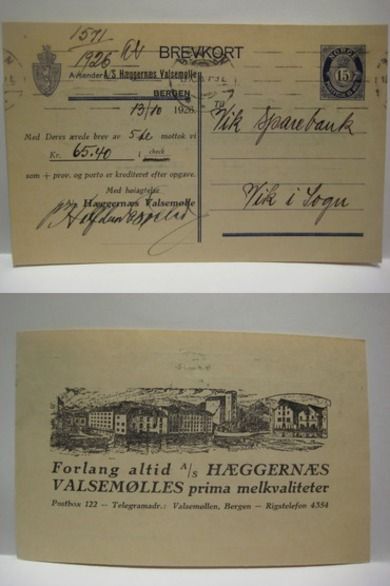 1571
1926
BREVKORT
NORGE
15
Avsender: A/S Hæggernæs Valsemølle
BERGEN
13/10 1926.
Til
Vik Sparebank
Med Deres ærede brev av 5de mottok vi
Kr. 65.40 i check
som + prov. og porto er krediteret efter opgave.
Vik i Sogn
Med høiagtelse
Hæggernæs Valsemølle
Forlang altid A/S HÆGGERNÆS
VALSEMØLLES prima melkvaliteter
Postbox 122 — Telegramadr.: Valsemøllen, Bergen — Rigstelefon 4354